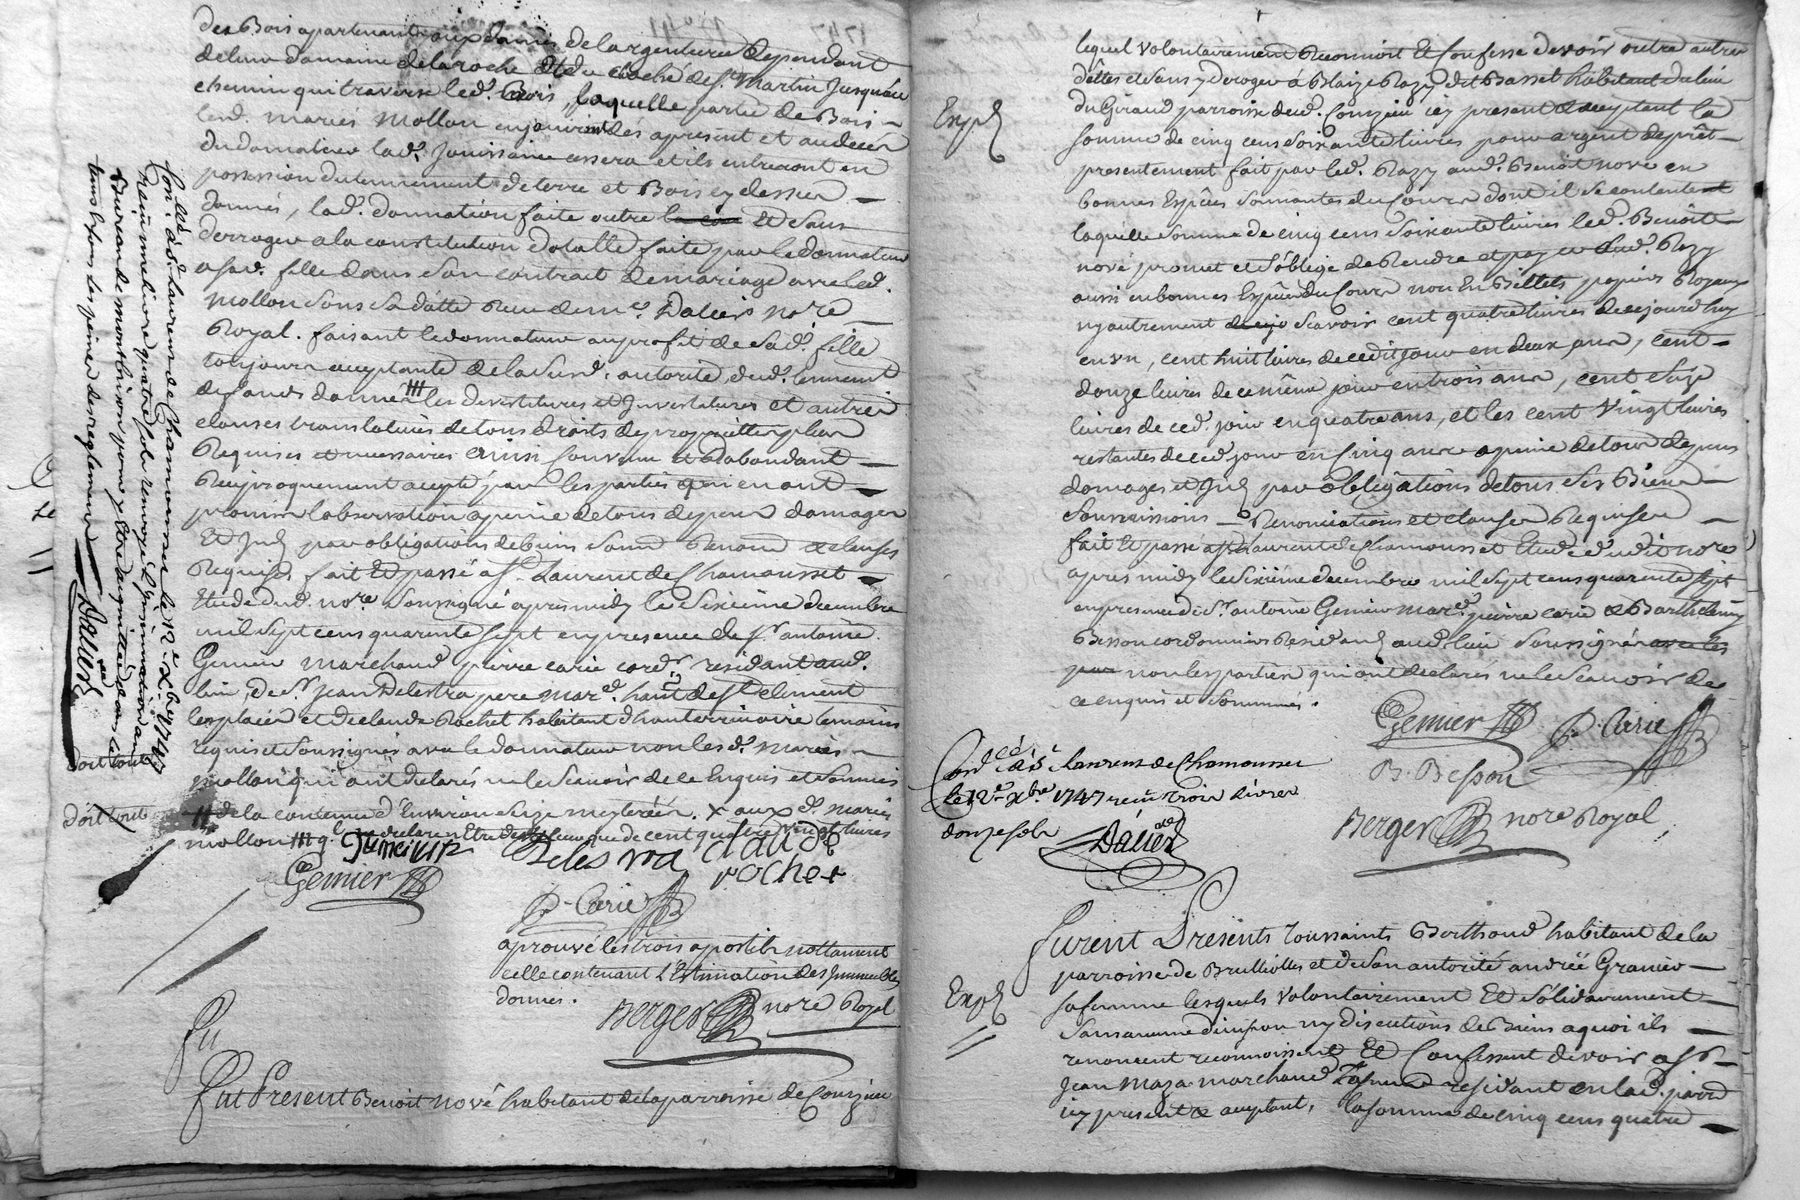 des Bois apartenant aux dames de largentiere dependant
de leur domaine de laroche et du cloché de St. Martin jusqu'au
chemin qui traverse led. Bois, laquelle partie de Bois
lesd. mariés Mollon en jouiront dés apresent et au decès
du donateur lad. jouissance cessera et ils entreront en
possession du tennement de terre et Bois cy dessus
donnés, lad. donnation faite outre et sans
derroger a la constitution dotalle faitte par le donnateur
a sad. fille dans son contrat de mariage avec led.
Mollon sous sa datte reçu de me. Dalier nore
Royal. faisant le donnateur au profit de sad. fille
toujours aceptante de la susd. autorité, dud. tennement
de fonds donnés les devestitures et investitures et autres
clauses translatives de tous droits de propriette plus
Requises et necessaires ainsi convenu et d'abondant
Reciproquement acepté par les parties qui en ont
promis l'observation a peine de tous depens damages
Et Jnts par obligations de biens soums Renonds et clauses
Requises fait Et passé a St. Laurent de Chamousset
Etude dud. nore. soussigné apres midy le sixième decembre
mil sept cens quarente sept en presence de sr antoine
Genier marchand, pierre carie cordr residant aud.
lieu, de sr jean Delestra pere mard. habit de St clement
les places et de claude Rochet habitant d'hauterrivoire temoins
requis et soussignés avec le donnateur non lesd. mariés
mollon qui ont declarés ne le scavoir de ce Enquis et sommés
de la contenue d'Environ seize meterées, x aux d. mariés
mollon
Delestra claude
rochet
Genier
P. Carie
aprouvé les trois apostils nottament
celle contenant l'Estimation des Immeubles
donnés.
Berger nore Royal
Fu
Fut Present Benoit nové habitant de la parroisse de Courzieu
Conlé. à St. laurent de Chamousset le 12e. Xbre 1747
reçu une livre quatre sols renvoyé l'insinuation au
Bureau de montbrison pour y Etre aquittée dans le
tems et sous les peines des reglemens
Dalier
doit tout
doit tout
lequel volontairement Reconnoit Et Confesse devoir outre autres
dettes et sans y deroger à Blaize Razy dit Basset habitant du lieu
du Giraud parroisse dud. Courzieu icy present et aceptant la
Expd
somme de cinq cens soixante livres pour argent de prêt
presentement fait par led. Razy aud. Benoit nové en
bonnes Espèces sonnantes du Cours dont il se contente
laquelle somme de cinq cens soixante livres led. Benoit
nové promet et s'oblige de Rendre et payer aud. Razy
aussi en bonnes Espèces du Cours non En Billets, papiers Royaux
ny autrement scavoir cent quatre livres de cejourd'huy
en un, cent huit livres de cedit jour en deux ans, cent
douze livres de ce même jour en trois ans, cent seize
livres de ced. jour en quatre ans, et les cent vingt livres
restantes de ced. jour en cinq ans a peine de tous depens
domages et Jnts par obligations de tous ses Biens
soumissions Renonciations et clauses Requises
fait Et passé a St Laurent de Chamousset Etude dudit nore
apres midy le sixième decembre mil sept cens quarente sept
en presence de sr. antoine Genier mard. pierre carie et Barthelemy
Besson cordonniers Residants aud. lieu soussignés
non les parties qui ont declarés ne le scavoir de
ce enquis et sommés.
Genier P. Carie
B. Besson
Conlé à St. Laurent de Chamousset
le 12e. Xbre 1747 reçu trois livres
douze sols
Dalier
Berger nore Royal
Furent Presents toussaints Berthond habitant de la
parroisse de Brulliolles et de son autorité andréé Granier
Expd
sa femme lesquels volontairement Et solidairement
sans aucune division ny discutions de Biens a quoi ils
renoncent reconnoissent Et Confessent devoir a sr
Jean Maza marchand residant en lad. parrd
icy present et aceptant, la somme de cinq cens quatre